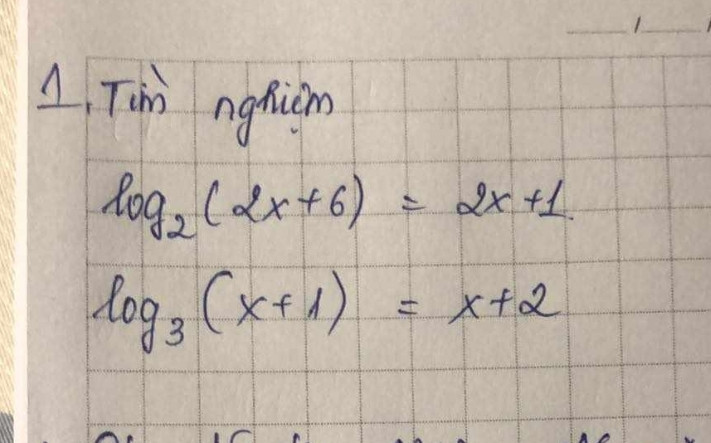 1. Tìm nghiệm
log₂(2x+6) = 2x+1
log₃(x+1) = x+2